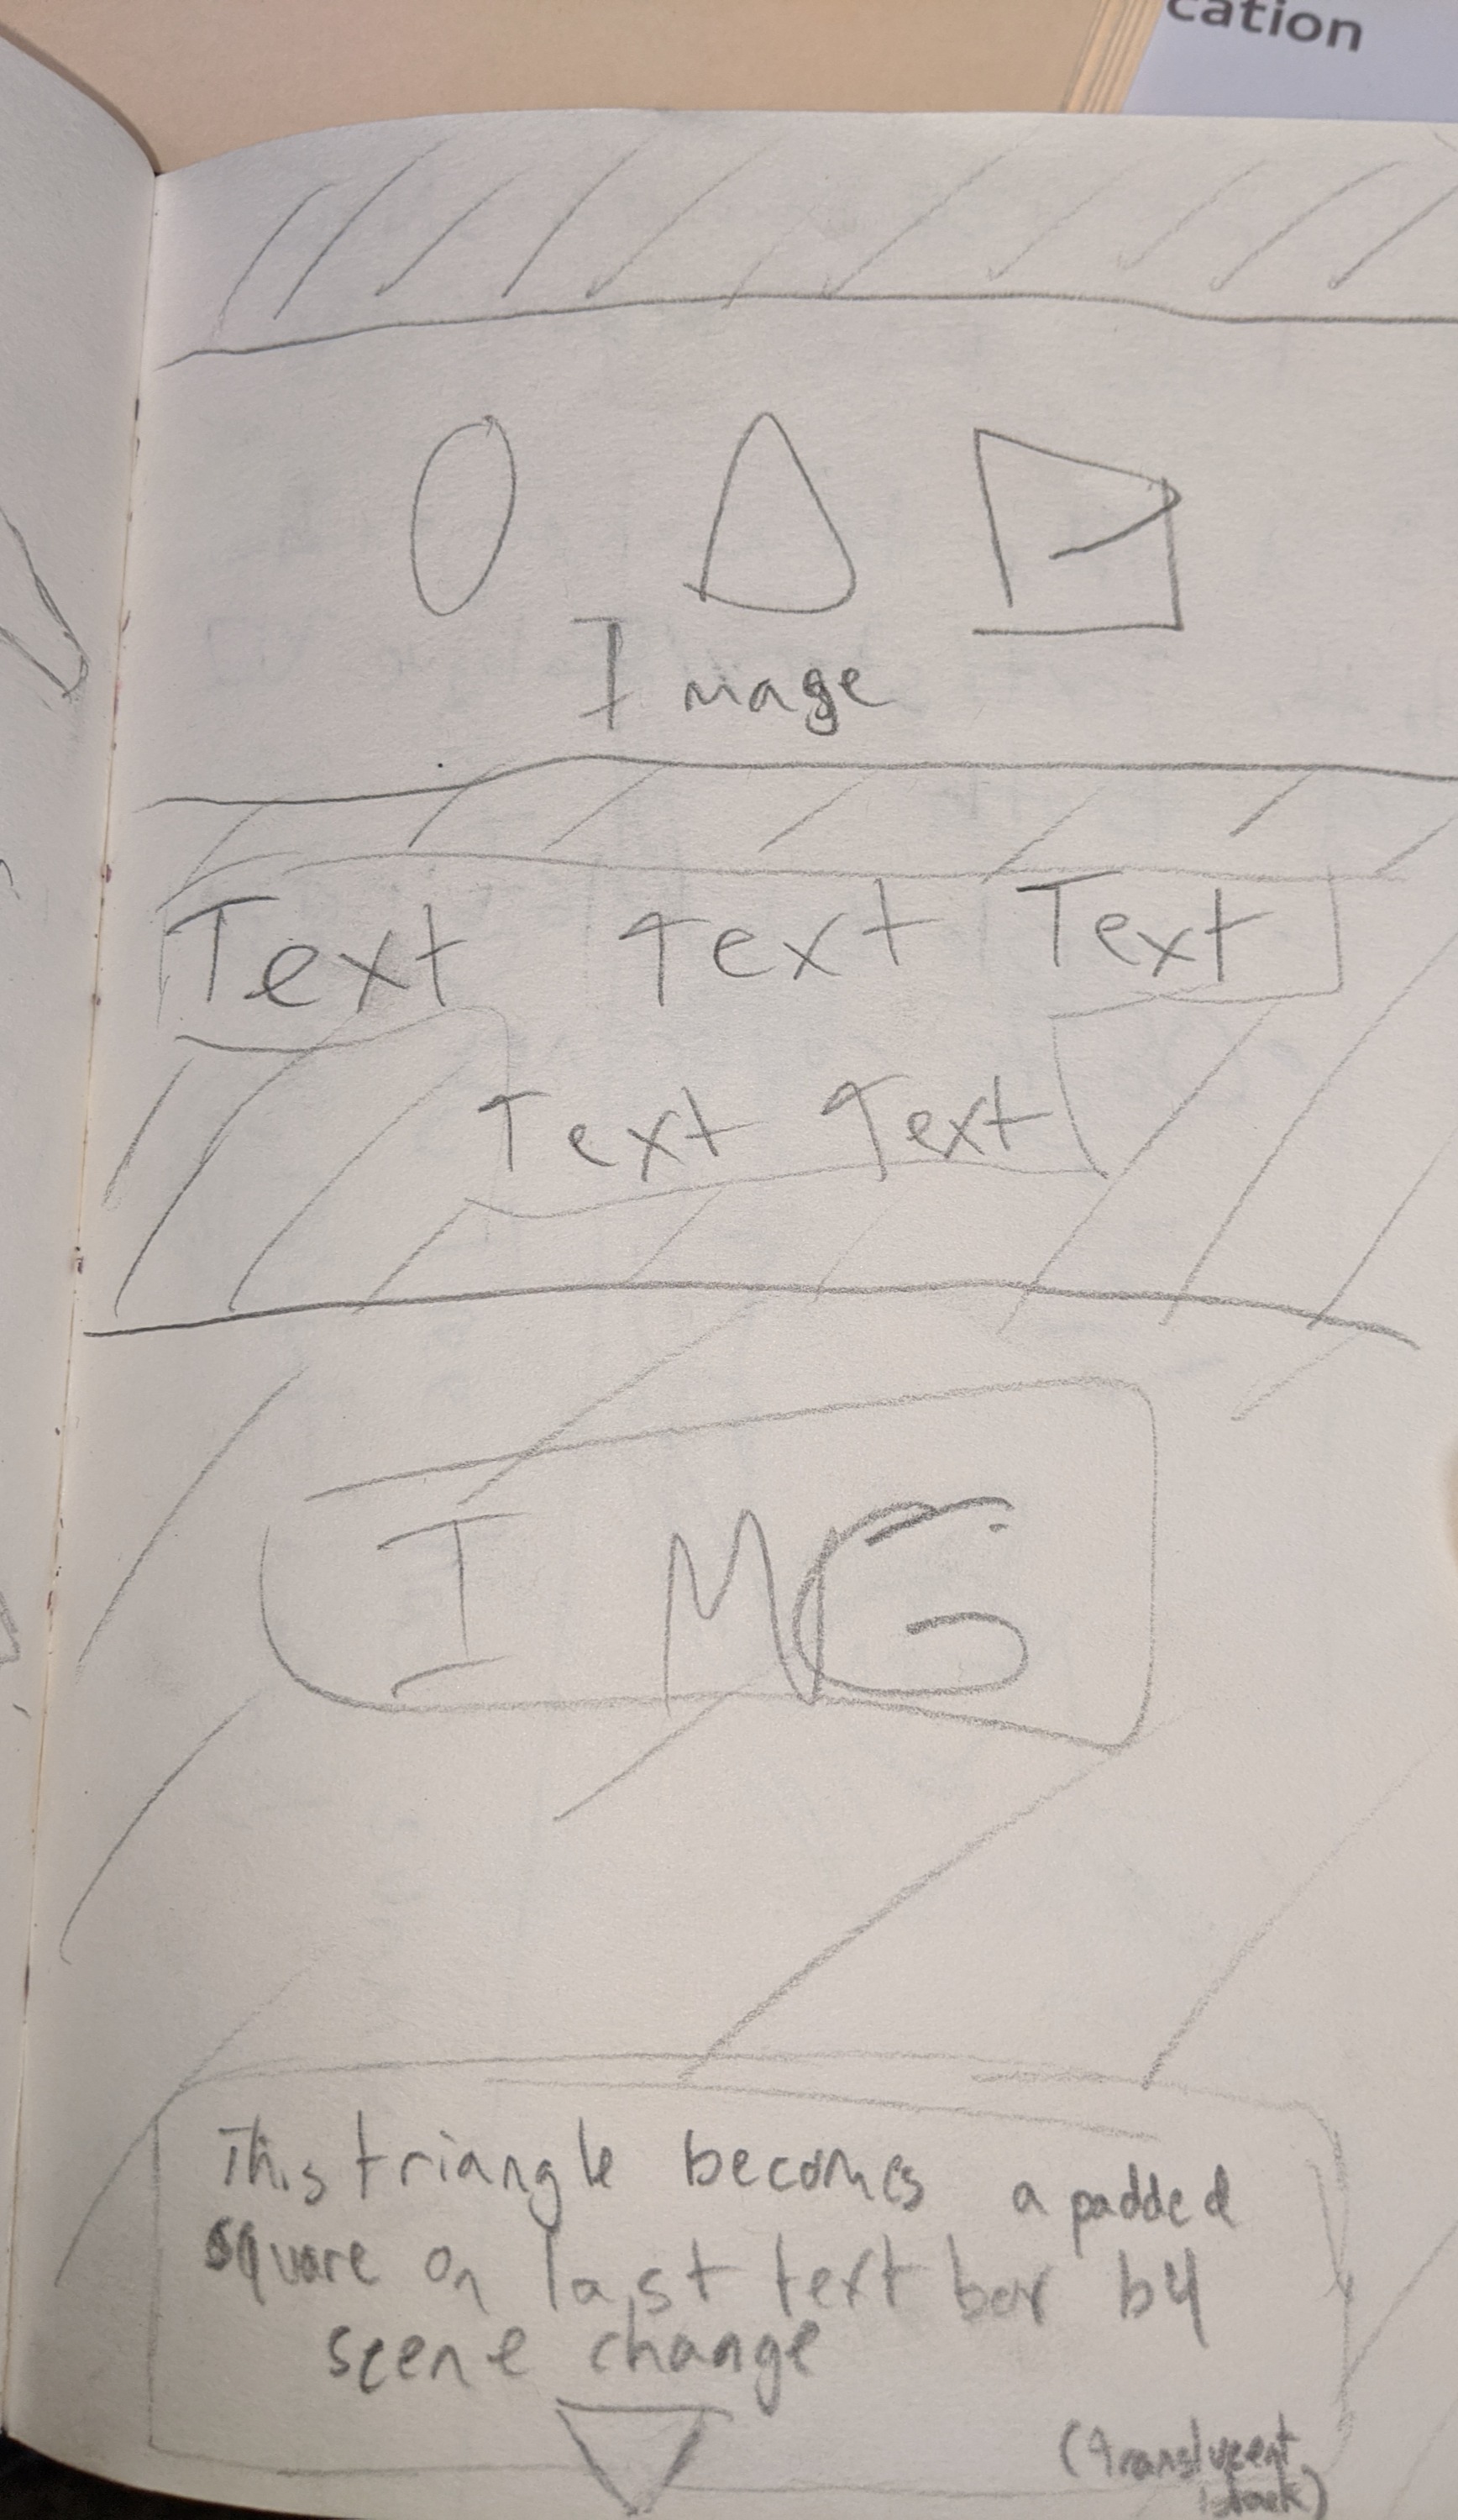 cation
Image
Text Text Text
Text Text
IMG
This triangle becomes a padded
square on last text box by
scene change
(translucent
black)